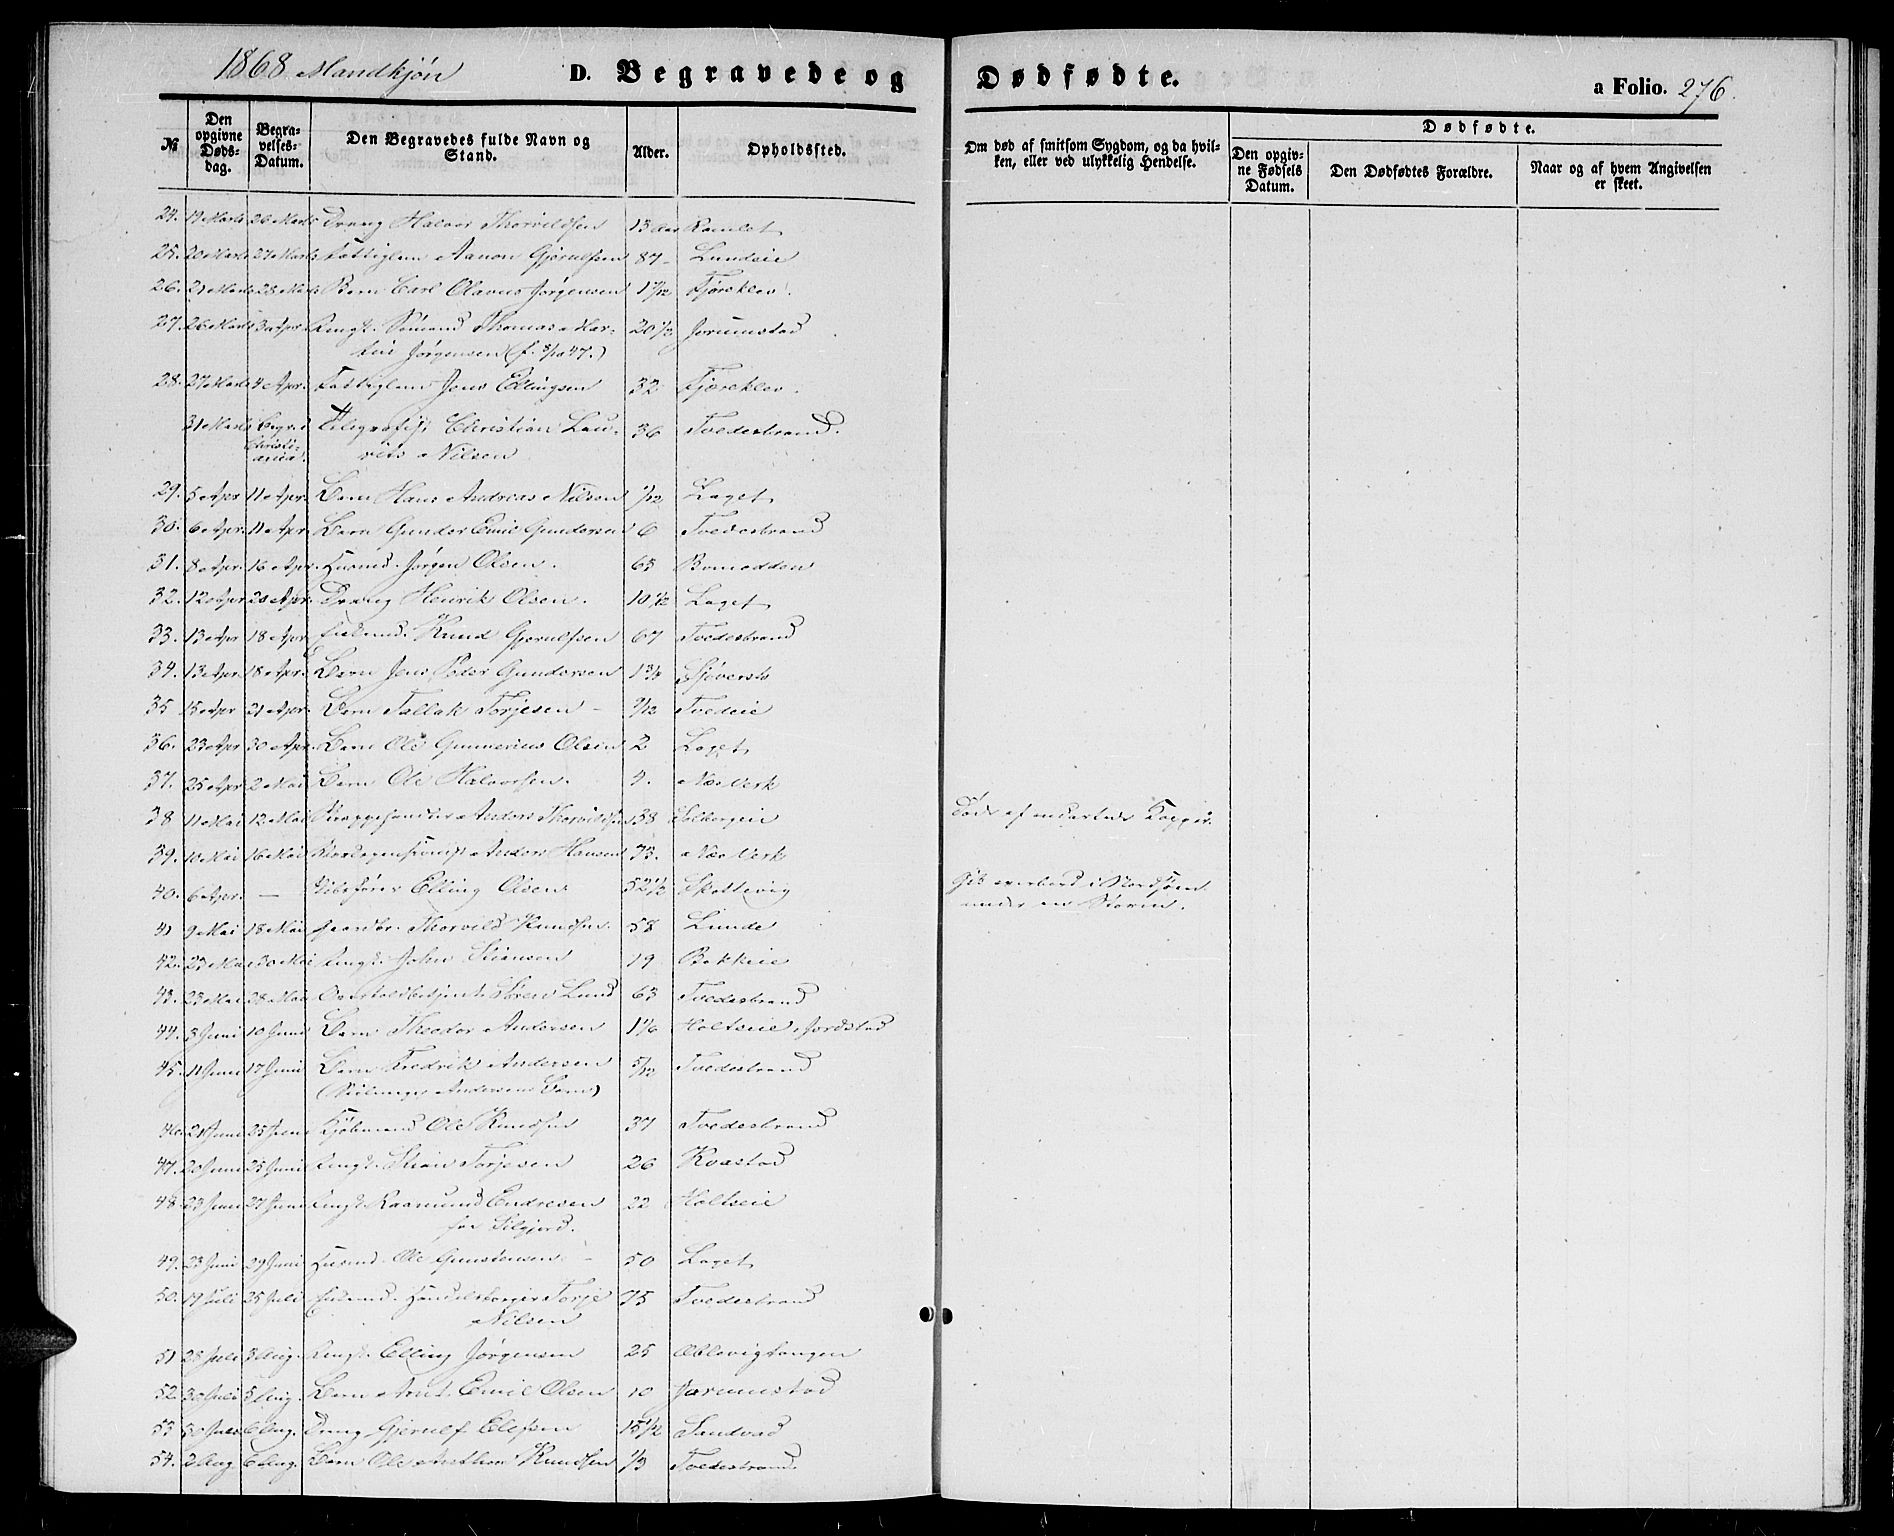 1868 Mandkjøn D. Begravede og Dødfødte. a Folio. 276.
№ Den opgivne Dødsdag. Begravelses-Datum. Den Begravedes fulde Navn og Stand. Alder. Opholdssted. Om død af smitsom Sygdom, og da hvilken, eller ved ulykkelig Hendelse. Dødfødte. Den opgivne Fødsels Datum. Den Dødfødtes Forældre. Naar og af hvem Angivelsen er skeet.
24. 19 Marts 26 Marts Dreng Halvor Thorvildsen 13 Ramlet
25. 20 Marts 27 Marts Fattiglem Aanon Gjerulfsen 87 Lundeie
26. 21 Marts 28 Marts Barn Carl Olavus Jørgensen 1 1/12 Fjøreklev.
27. 26 Marts 3 Apr Ungk. Sømand Thomas Mar-
tin Jørgensen (f. 47.) 20 1/2 Jorumstad
28. 27 Marts 4 Apr. Fattiglem Jens Ellingsen 32 Fjæreklev.
31 Marts Begr. i Christi- Telegrafist Christian Lau- 36 Tvedestrand.
ania. rits Nilsen
29. 5 Apr 11 Apr. Barn Hans Andreas Nilsen 1/12 Laget
30. 6 Apr. 11 Apr Barn Gunder Emil Gundersen 6 Tvedestrand
31. 8 Apr. 16 Apr. Husmd. Jørgen Olsen. 65 Bomodden
32. 12 Apr 20 Apr. Dreng Henrik Olsen. 10 1/2 Laget
33. 13 Apr 18 Apr. Knud Gjerulfsen 67 Tvedestrand
34. 13 Apr 18 Apr. Barn Jens Peder Gundersen 1 3/4 Sjøversto
35 15 Apr 21 Apr. Barn Tallak Torjesen - 9/12 Tvedeie
36. 23 Apr 30 Apr. Barn Ole Gunnerius Olsen 2 Laget
37. 25 Apr 2 Mai Barn Ole Halvorsen. 4. Næs Verk
38 11 Mai 12 Mai Anders Thorvildsen 38 Solbergeie Døde af Kopper.
39. 10 Mai 16 Mai Anders Hansen 73. Næs Verk
40. 6 Apr. — Skibsfører Elling Olsen 52 1/2 Skottevig Gik overbord i Nordsjøen
under en Storm.
41 9 Mai 18 Mai Gaardbr. Thorvild Knudsen. 58 Lunde
42. 23 Mai 30 Mai Ungk. John Stiansen 19 Bakkeie
43. 23 Mai 28 Mai Overtoldbetjent Søren Lund 63 Tvedestrand
44. 3 Juni 10 Juni Barn Theodor Andersen 1 1/6 Holtseie, Jordstad
45. 11 Juni 17 Juni Barn Fredrik Andersen 5/12 Tvedestrand
Andersens Barn)
46. 21 Juni 25 Juni Kjøbmand Ole Knudsen 37 Tvedestrand
47. 20 Juni 25 Juni Ungk. Stian Torjesen 26 Kvastad
48. 23 Juni 27 Juni Ungk. Raamund Endresen 22 Holtseie
fra Silgjord.
49. 23 Juni 29 Juni Husmd. Ole Gunstensen - 50 Laget
50. 19 Juli 25 Juli Enkemd. Handelsborger Torje 75 Tvedestrand
Nilsen
51 28 Juli 3 Aug. Ungk. Elling Jørgensen 25 Oblevigtangen
52. 30 Juli 5 Aug. Barn Arnt Emil Olsen 10 Jorumstad
53 30 Juli 6 Aug. Dreng Gjerulf Elefsen 15 1/2 Sandvad
54. 2 Aug. 6 Aug. Barn Ole Anthon Knudsen 1/3 Tvedestrand.